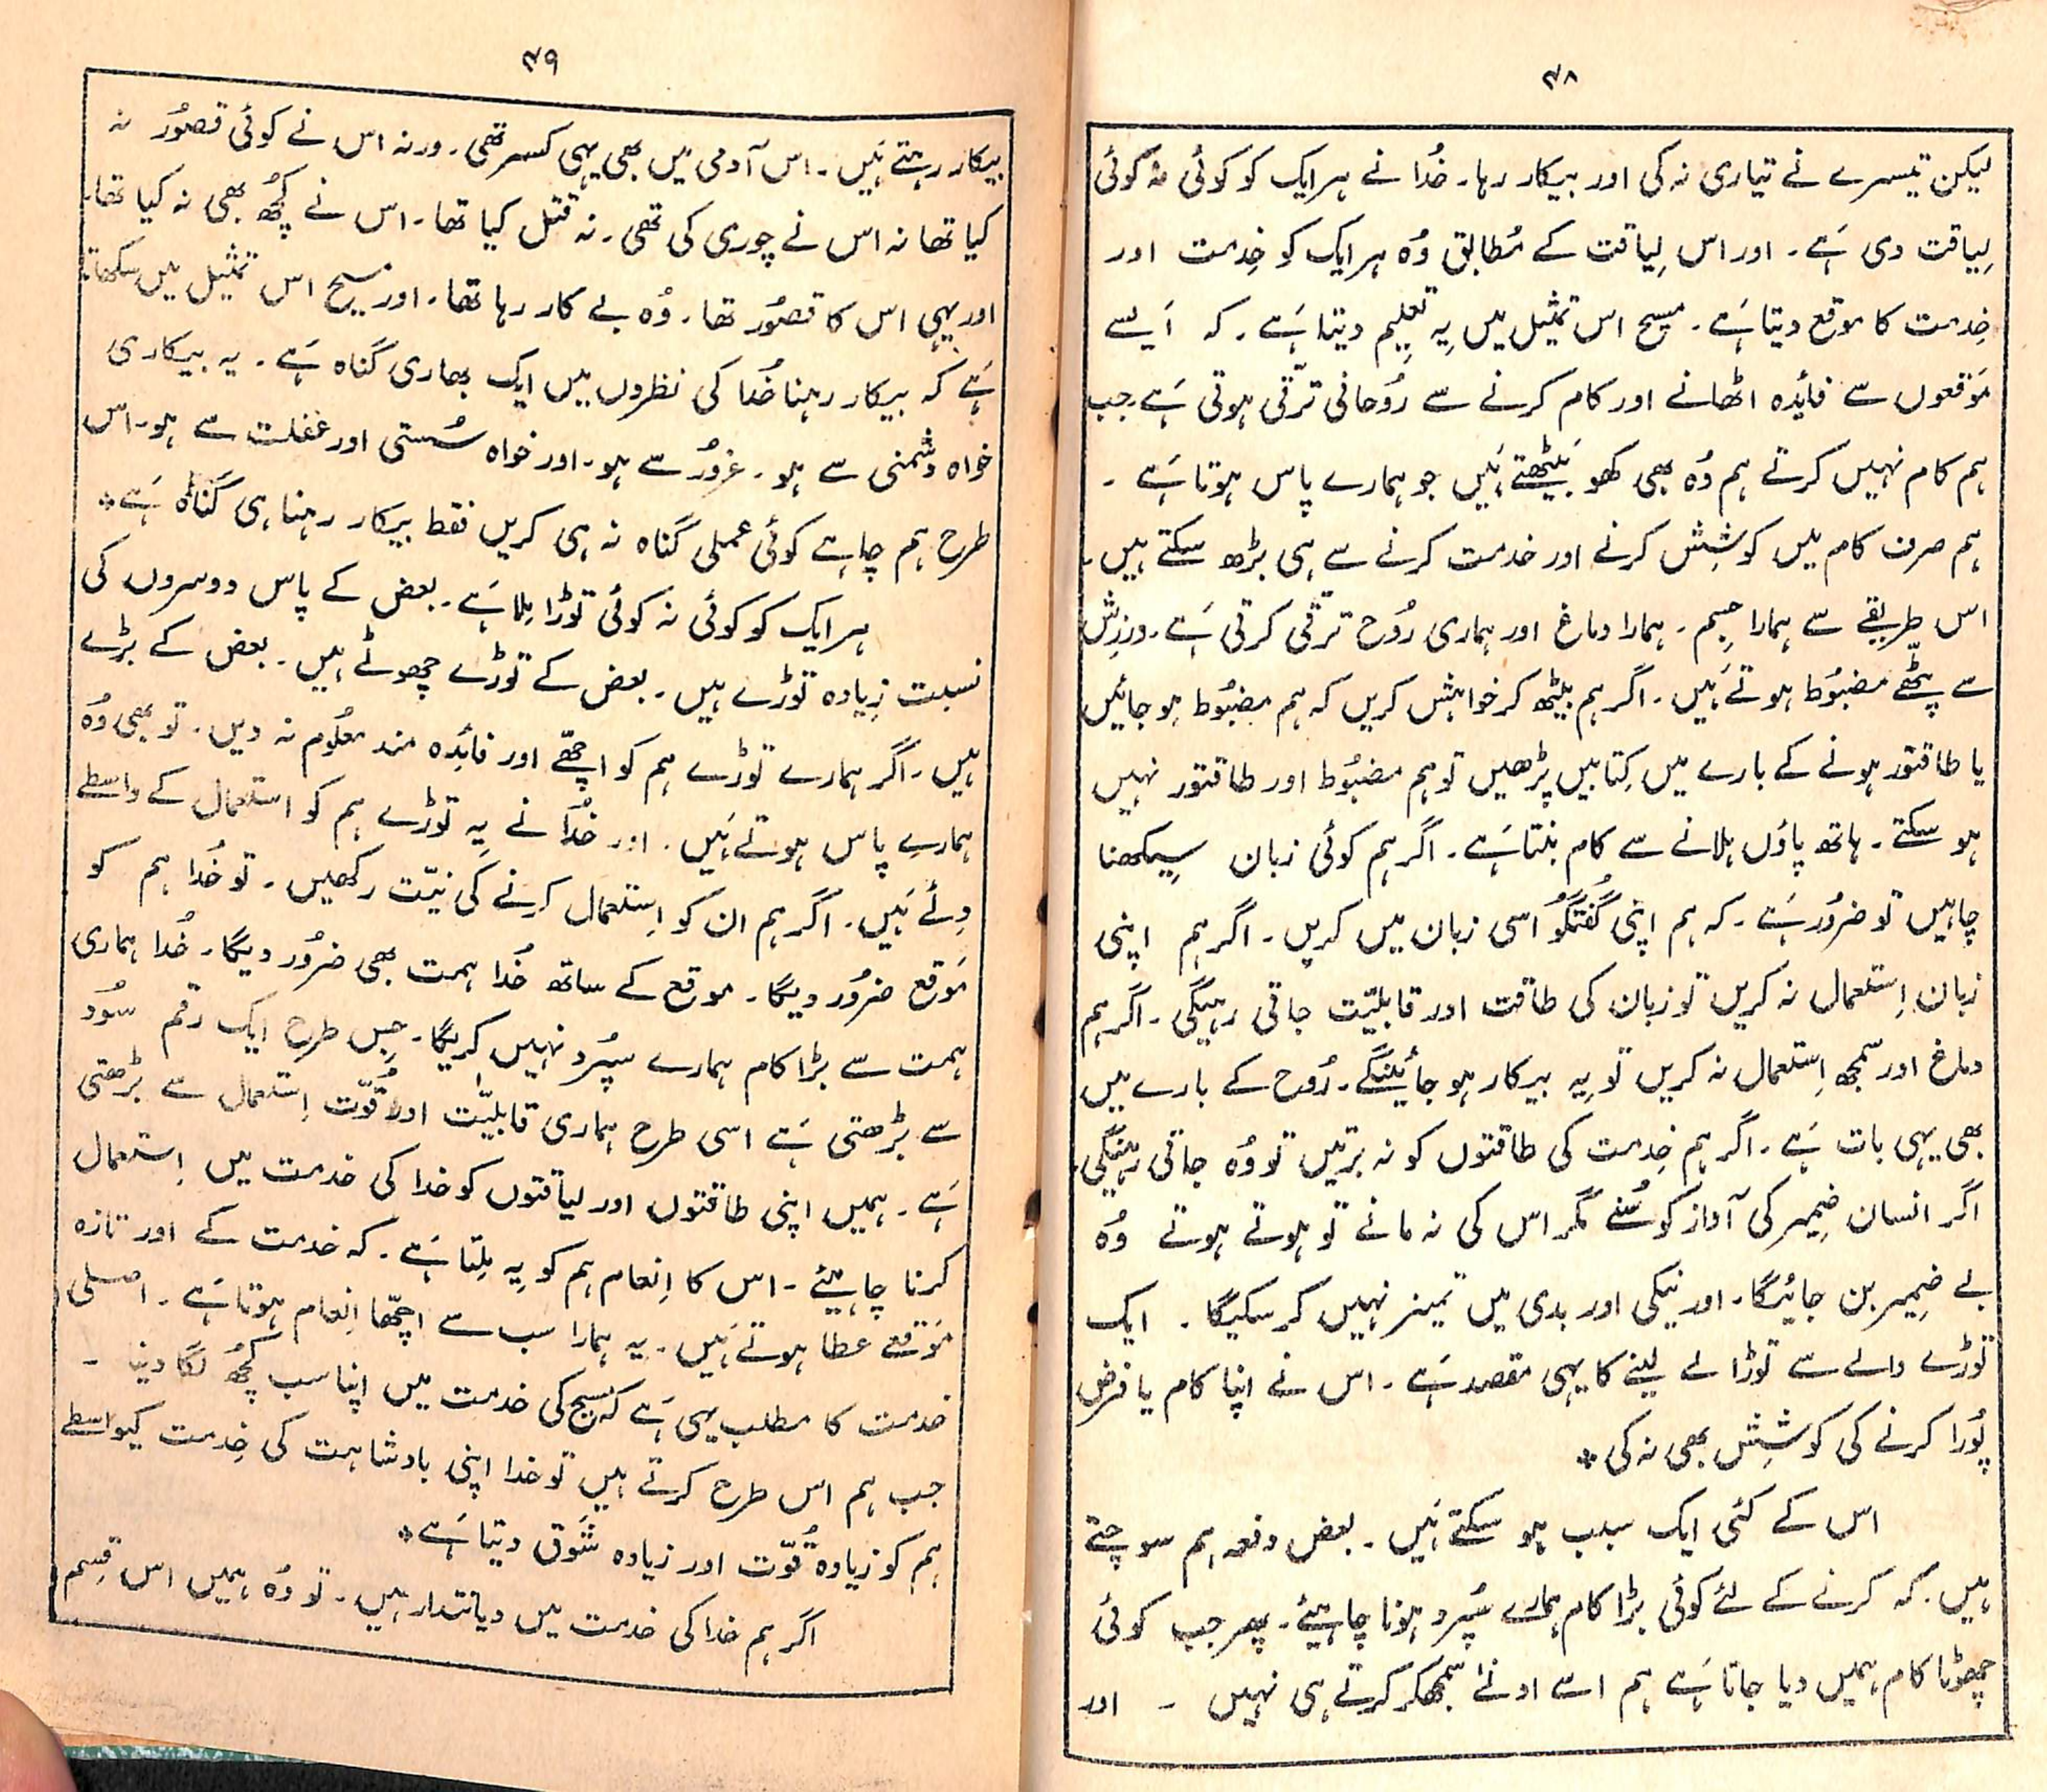 ۴۸
لیکن تیسرے نے تیاری نہ کی اور بیکار رہا۔ خُدا نے ہر ایک کو کوئی نہ کوئی
لِیاقت دی ہَے۔ اور اس لِیاقت کے مُطابق وُہ ہر ایک کو خِدمت اور
خِدمت کا موقع دیتا ہَے۔ مسیح اس تمثیل میں یِہ تعلِیم دیتا ہَے۔ کہ اَیسے
مَوقعوں سے فائِدہ اٹھانے اور کام کرنے سے رُوحانی ترّقی ہوتی ہَے۔ جب
ہم کام نہیں کرتے ہم وُہ بھی کھو بَیٹھتے ہَیں جو ہمارے پاس ہوتا ہَے۔
ہم صرف کام میں کوشِش کرنے اور خدمت کرنے سے ہی بڑھ سکتے ہیں۔
اس طریقے سے ہمارا جِسم۔ ہمارا دماغ اور ہماری رُوح ترقّی کرتی ہَے۔ ورزِش
سے پٹّھے مضبُوط ہوتے ہَیں۔ اگر ہم بیٹھ کر خواہش کریں کہ ہم مضبُوط ہو جائیں
یا طاقتور ہونے کے بارے میں کِتابیں پڑھیں تو ہم مضبُوط اور طاقتور نہیں
ہو سکتے۔ ہاتھ پاؤں ہلانے سے کام بنتا ہَے۔ اگر ہم کوئی زبان سِیکھنا
چاہیں تو ضرُور ہَے۔ کہ ہم اپنی گُفتگُو اسی زبان میں کریں۔ اگر ہم اپنی
زبان اِستعمال نہ کریں تو زبان کی طاقت اور قابلیّت جاتی رہیگی۔ اگر ہم
دماغ اور سمجھ اِستعمال نہ کریں تو یِہ بیکار ہو جائینگے۔ رُوح کے بارے میں
بھی یہی بات ہَے۔ اگر ہم خِدمت کی طاقتوں کو نہ برتیں تو وُہ جاتی رہینگی۔
اگر انسان ضمِیر کی آواز کو سُنے مگر اس کی نہ مانے تو ہوتے ہوتے وُہ
بے ضمِیر بن جائیگا۔ اور نیکی اور بدی میں تمیز نہیں کر سکیگا۔ ایک
توڑے والے سے توڑا لے لینے کا یہی مقصد ہَے۔ اس نے اپنا کام یا فرض
پُورا کرنے کی کوشِش بھی نہ کی٭
اس کے کئی ایک سبب ہو سکتے ہَیں۔ بعض دفعہ ہم سوچتے
ہیں۔ کہ کرنے کے لئے کوئی بڑا کام ہمارے سُپرد ہونا چاہیئے۔ پھر جب کوئی
چھوٹا کام ہمیں دیا جاتا ہَے ہم اسے ادنےٰ سمجھکر کرتے ہی نہیں ۔ اور
۴۹
بیکار رہتے ہَیں۔ اس آدمی میں بھی یہی کسر تھی۔ ورنہ اس نے کوئی قصُور نہ
کیا تھا نہ اس نے چوری کی تھی۔ نہ قتل کیا تھا۔ اس نے کُچھ بھی نہ کیا تھا۔
اور یہی اس کا قصُور تھا۔ وُہ بے کار رہا تھا۔ اور مسیح اس تمثیل میں سکھاتا
ہَے کہ بیکار رہنا خُدا کی نظروں میں ایک بھاری گناہ ہَے۔ یہ بیکاری
خواہ دُشمنی سے ہو۔ غرُور سے ہو۔ اور خواہ سُستی اور غفلت سے ہو۔ اس
طرح ہم چاہے کوئی عملی گناہ نہ ہی کریں فقط بیکار رہنا ہی گناہ ہَے٭
ہر ایک کو کوئی نہ کوئی توڑا مِلا ہَے۔ بعض کے پاس دوسروں کی
نسبت زِیادہ توڑے ہیں۔ بعض کے توڑے چھوٹے ہیں۔ بعض کے بڑے
ہیں۔ اگر ہمارے توڑے ہم کو اچھّے اور فائِدہ مند معلُوم نہ دیں۔ تو بھی وُہ
ہمارے پاس ہوتے ہَیں۔ اور خُدا نے یِہ توڑے ہم کو استعمال کے واسطے
دِئے ہَیں۔ اگر ہم ان کو اِستعمال کرنے کی نیّت رکھیں۔ تو خُدا ہم کو
مَوقع ضرُور دیگا۔ موقع کے ساتھ خُدا ہمت بھی ضرُور دیگا۔ خُدا ہماری
ہمت سے بڑا کام ہمارے سپُرد نہیں کریگا۔ جِس طرح ایک رقم سُود
سے بڑھتی ہَے اسی طرح ہماری قابلیّت اور قُوّت اِستعمال سے بڑھتی
ہَے۔ ہمیں اپنی طاقتوں اور لیاقتوں کو خدا کی خدمت میں اِستعمال
کرنا چاہیئے۔ اس کا اِنعام ہم کو یِہ مِلتا ہَے۔ کہ خدمت کے اور تازہ
مَوقعے عطا ہوتے ہَیں۔ یِہ ہمارا سب سے اچھّا اِنعام ہوتا ہَے۔ اصلی
خدمت کا مطلب یہی ہَے کہ مسیح کی خدمت میں اپنا سب کُچھ لگا دینا ۔
جب ہم اس طرح کرتے ہیں تو خدا اپنی بادشاہت کی خِدمت کیواسطے
ہم کو زیادہ قُوّت اور زیادہ شَوق دیتا ہَے٭
اگر ہم خدا کی خدمت میں دیانتدار ہیں۔ تو وُہ ہمیں اس قِسم